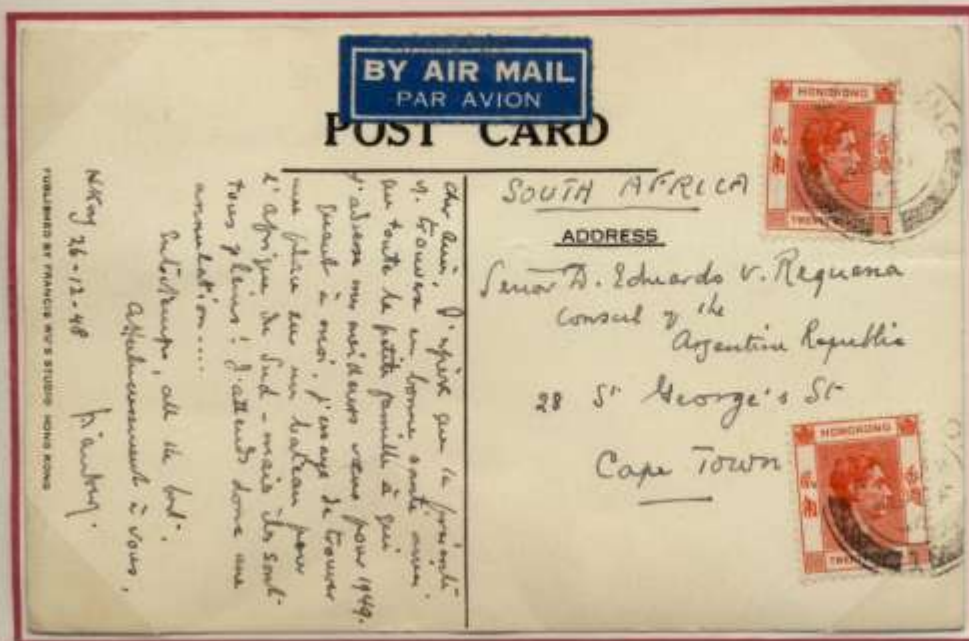 BY AIR MAIL
PAR AVION
POST CARD
HONG KONG
貳角
香港
TWENTY
SOUTH AFRICA
ADDRESS
Senor D. Eduardo V. Requena
Consul of the
Argentine Republic
28 St George's St
Cape Town
HONG KONG
貳角
香港
TWENTY
Cher ami, J'espère que la présente
v. trouvera en bonne santé ainsi
que toute la petite famille à qui
j'adresse mes meilleurs vœux pour 1949.
Quant à moi, j'essaye de trouver
une place en un bateau pour
l'afrique du Sud - mais ils sont
tous pleins! J'attends donc une
annulation....
Entretemps, all the best.
à vous,
HKong 26-12-48
PUBLISHED BY FRANCIS WU'S STUDIO HONG KONG